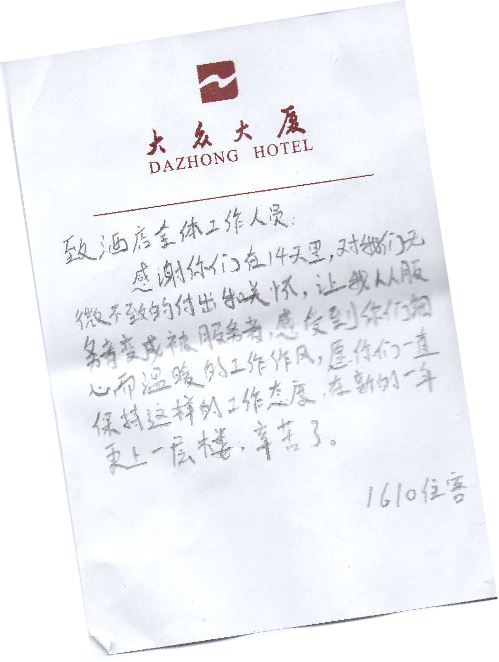 大众大厦
DAZHONG HOTEL
致酒店全体工作人员:
感谢你们在14天里,对我们无
微不致的付出和关怀,让我从服
务者变成被服务者,感受到你们细
心而温暖的工作作风,愿你们一直
保持这样的工作态度,在新的一年
更上一层楼,辛苦了。
1610住客